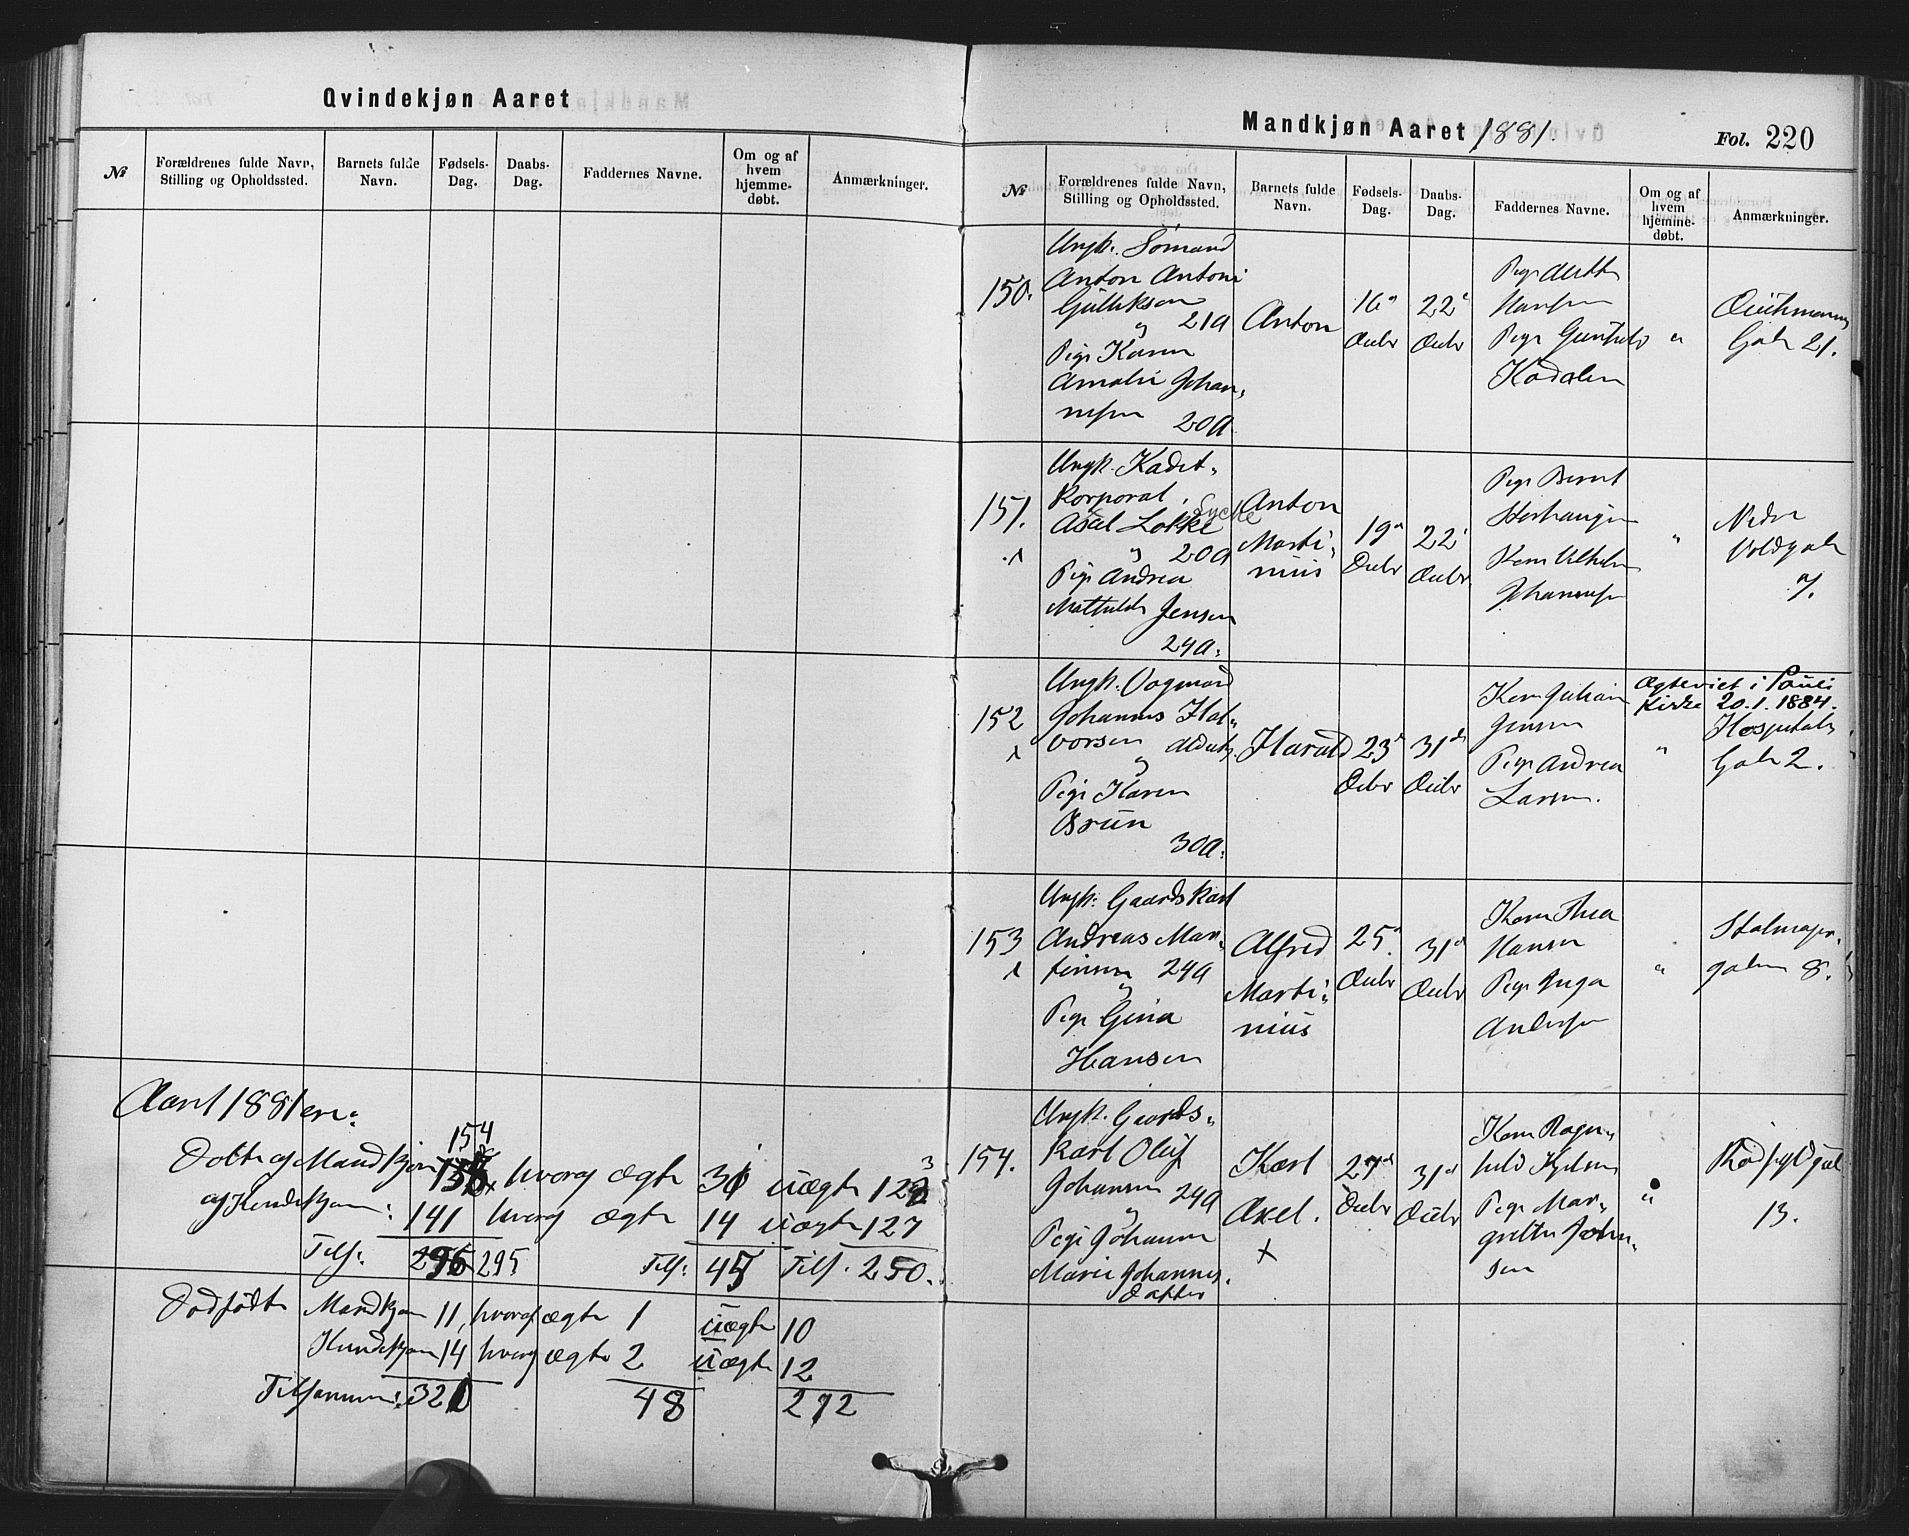 Qvindekjøn Aaret
№
Forældrenes fulde Navn,
Stilling og Opholdssted.
Barnets fulde
Navn.
Fødsels-
Dag.
Daabs-
Dag.
Faddernes Navne.
Om og af
hvem
hjemme-
døbt.
Anmærkninger.
Aaret 1881 ere:
154
Døbte af Mandkjøn hvoraf ægte 31 uægte 123
af Kvindekjøn: 141 hvoraf ægte 14 uægte 127
Tils: 295 Tils: 45 Tils. 250.
Dødfødte Mandkjøn 11, hvoraf ægte 1 uægte 10
Kvindekjøn 14 hvoraf ægte 2 uægte 12
Tilsammen: 320 48 272
Mandkjøn Aaret 1881.
Fol. 220
№
Forældrenes fulde Navn,
Stilling og Opholdssted.
Barnets fulde
Navn.
Fødsels-
Dag.
Daabs-
Dag.
Faddernes Navne.
Om og af
hvem
hjemme-
døbt.
Anmærkninger.
150.
Ungk. Sømand
Anton Antoni
Gulliksen
og 21a
Pige Karen
Amalie Johan-
nesen
20a
Anton
16d
Decbr
22d
Decbr
Hansen
Pige Gunhild
Kodalen
"
Gade 21.
151.
Ungk. Kadet-
Korporal
Axel Løkke Lycke
og 20a
Pige Andrea
Mathilde Jensen
24a.
Anton
Marti-
nius
19d
Decbr
22d
Decbr
Pige Bernt
Kone Vilhelm
Johannesen
"
Nedre
Voldgade
7.
152
Ungk. Vognmand
Johannes Hal-
vorsen
og
Pige Karen
Brun
30a.
Harald
23d
Decbr
31d
Decbr
Kone Juliane
Jensen
Pige Andrea
Larsen.
Ægteviet i Pauli
Kirke 20.1.1884.
"
Hospitals
Gade 2.
153
Ungk. Gaardskarl
Andreas Mar-
tinsen 24a
og
Pige Gina
Hansen
Alfred
Marti-
nius
25d
Decbr
31d
Decbr
Kone Thea
Hansen
Pige Inga
Andersen
"
gaden 8.
154.
Ungk. Gaards-
karl Oluf
Johansen 24a
og
Pige Johanne
Marie Johannes-
datter
Karl
Axel.
x
27d
Decbr
31d
Decbr
Kone Ragn-
hild
Pige Mar-
grethe John-
sen
"
13.